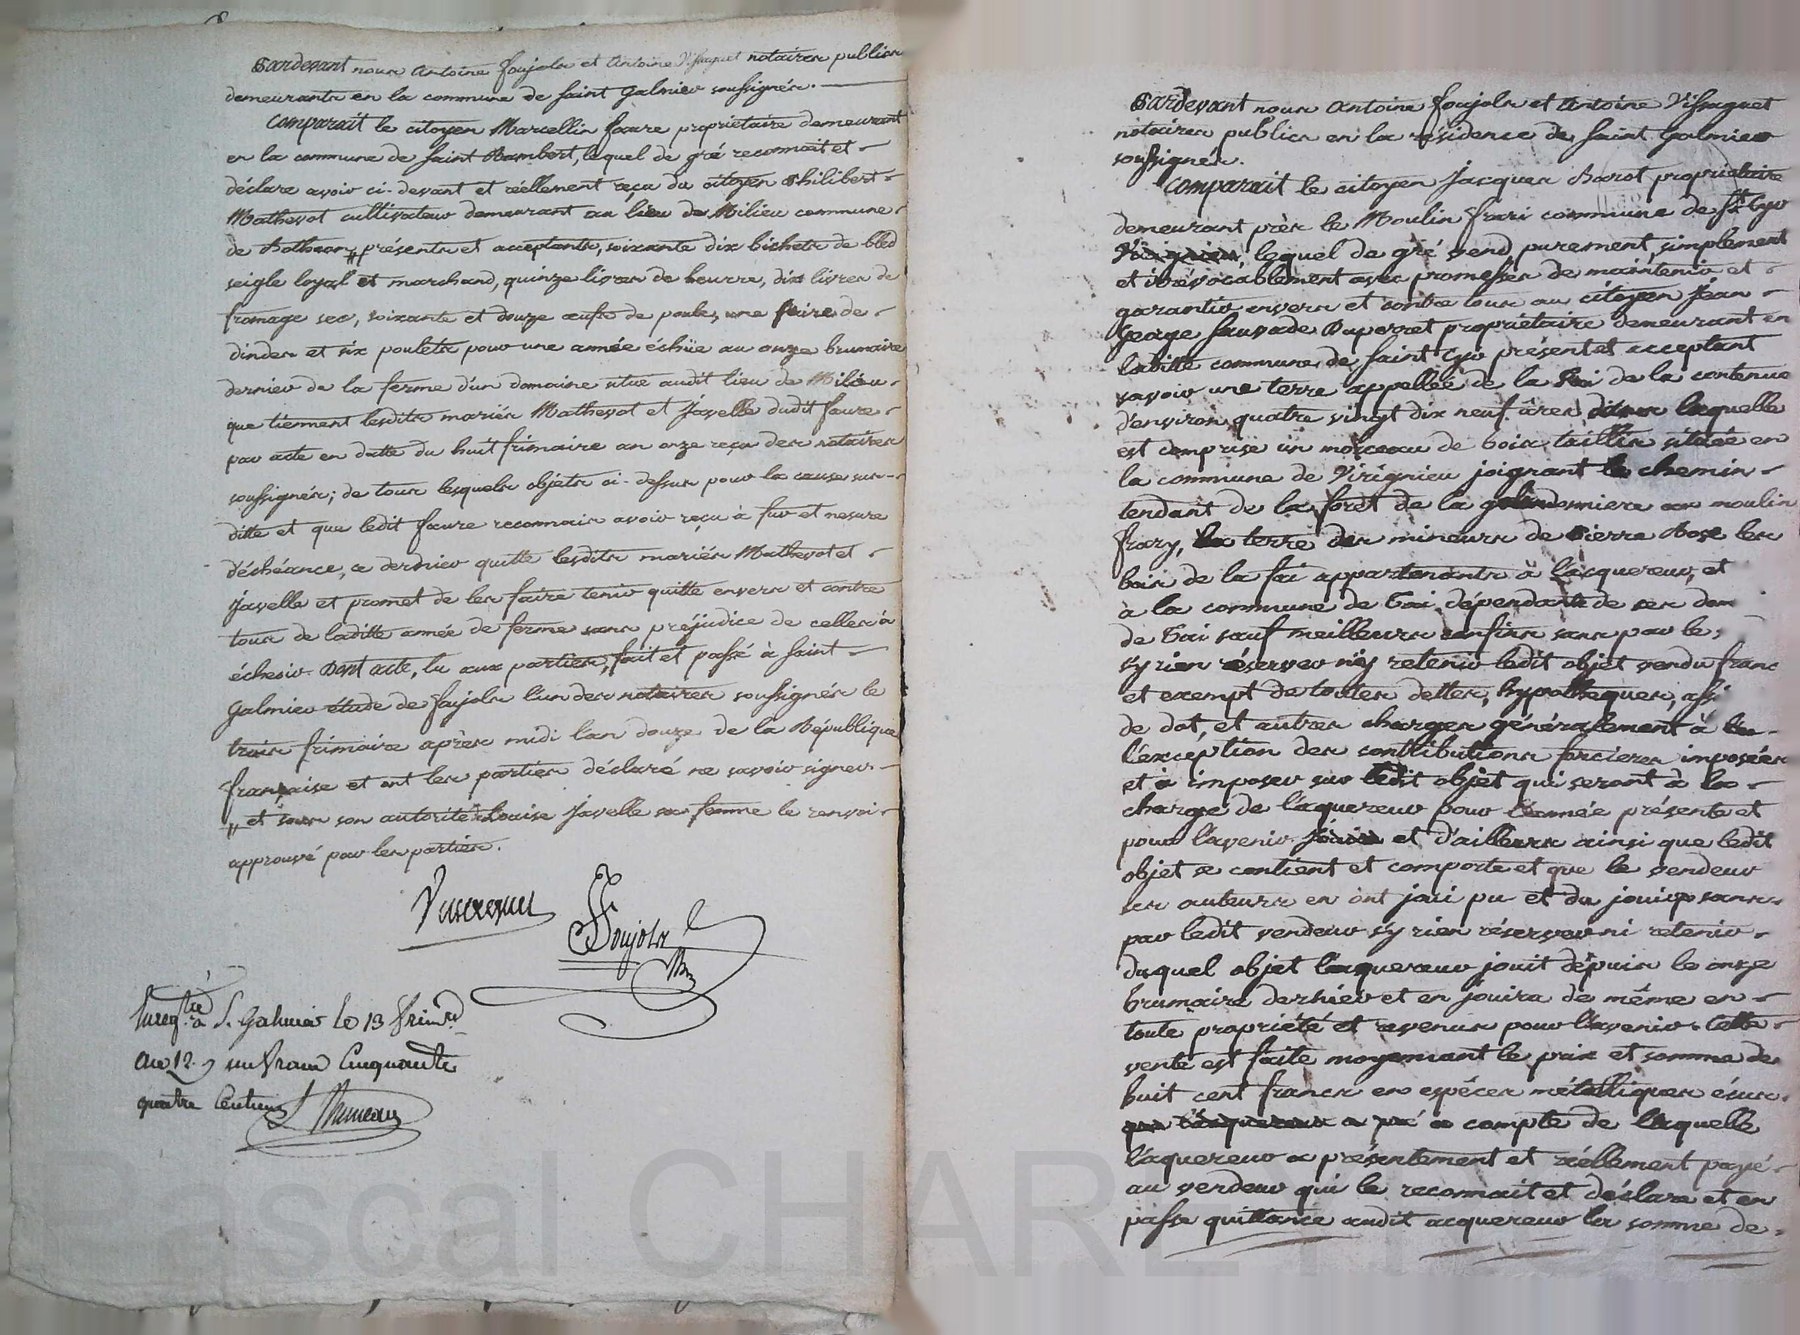 Pardevant nous Antoine Foujols et Antoine Vissaguet notaires publics
demeurants en la commune de Saint Galmier soussignés.
Comparait le citoyen Marcellin Faure propriétaire demeurant
en la commune de Saint Rambert, lequel de gré reconnait et
déclare avoir ci-devant et réellement reçu du citoyen Philibert
Mathevot cultivateur demeurant au lieu de Milieu commune
de Bothéon présents et acceptants, soixante dix bichets de bled
seigle loyal et marchand, quinze livres de beurre, dix livres de
fromage sec, soixante et douze œufs de poules, une paire de
dindes et six poulets pour une année échüe au onze brumaire
dernier de la ferme d'un domaine situé audit lieu de Milieu
que tiennent lesdits mariés Mathevot et Javelle dudit Faure
par acte en datte du huit frimaire an onze reçu des notaires
soussignés; de tous lesquels objets ci-dessus pour la cause sus-
ditte et que ledit Faure reconnais avoir reçu à fur et mesure
d'échéance, ce dernier quitte lesdits mariés Mathevot et
Javelle et promet de les faire tenir quitte envers et contre
tous de laditte année de ferme sans préjudice de celles à
échoir. Dont acte, lu aux parties, fait et passé à Saint
Galmier étude de Foujols l'un des notaires soussignés le
trois frimaire après midi l'an douze de la République
française et ont les parties déclaré ne savoir signer.
et sous son autorité Louise Javelle sa femme le renvoi
approuvé par les parties.
Vissaguet
Foujols
Enreg.tré à S. Galmier le 13 frim.re
an 12. un franc cinquante
quatre centimes
Pardevant nous Antoine Foujols et Antoine Vissaguet
notaires publics en la résidence de Saint Galmier
soussignés.
Comparait le citoyen Jacques Barot propriétaire
demeurant près le Moulin Frari commune de St Cyr
lequel de gré vend purement, simplement
et irrévocablement avec promesses de maintenir et
garantir envers et contre tous au citoyen Jean
George Sauvade Duperret propriétaire demeurant en
laditte commune de Saint Cyr présent et acceptant
savoir une terre appellée de la Fai de la contenue
d'environ quatre vingt dix neuf âres dans laquelle
est comprise un morceau de bois taillis située en
la commune de Virignieu joignant le chemin
tendant de la forêt de la au moulin
frary, la terre des mineurs de Pierre Bose les
bois de la fai appartenants à l'acquereur, et
à la commune de
de sauf meilleurs confins sans par le
sy rien réserver n'y retenir ledit objet vendu franc
et exempt de toutes dettes, hypothèques,
de dot, et autres charges généralement à
l'exception des contributions foncieres imposées
et à imposer sur ledit objet qui seront à la
charge de l'aquereur pour l'année présente et
pour l'avenir et d'ailleurs ainsi que ledit
objet se contient et comporte et que le vendeur
ses auteurs en ont joui pu et du jouir sans
par ledit vendeur sy rien réserver ni retenir
duquel objet l'aquereur jouit dépuis le onze
brumaire dernier et en jouira de même en
toute propriété et revenus pour l'avenir. Cette
vente est faite moyennant le prix et somme de
huit cent francs en espéces métalliques
à compte de laquelle
l'aquereur a présentement et réellement payé
au vendeur qui le reconnait et déclare et en
passe quittance audit acquereur la somme de